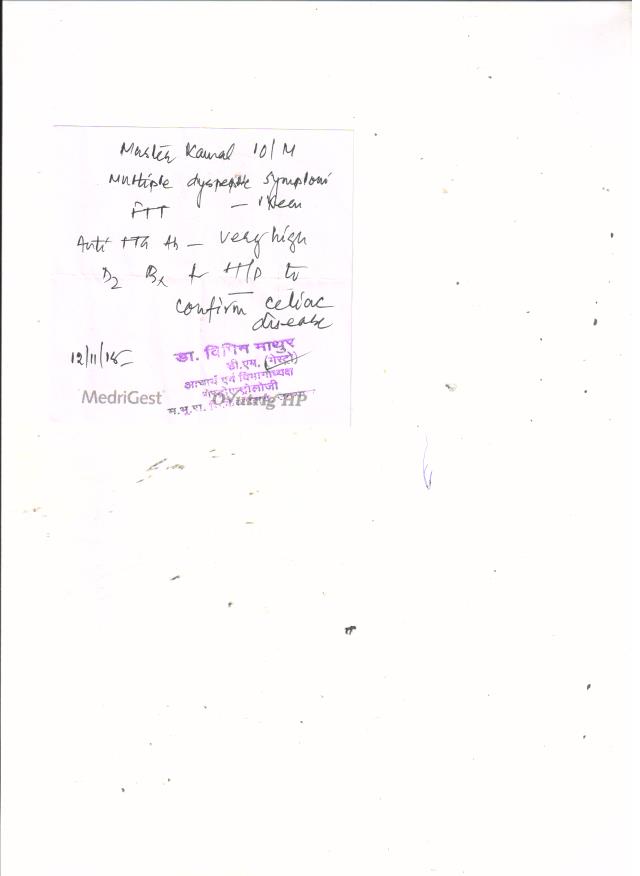 Master Kamal 10/M
Multiple dyspeptic symptoms
FTT —
Anti tTG Ab — very high
D2 Bx for H/P to
confirm celiac
disease
12/11/15
डा. विपिन माथुर
डी.एम. (गेस्ट्रो)
आचार्य एवं विभागाध्यक्ष
गेस्ट्रोएन्ट्रोलॉजी
MedriGest